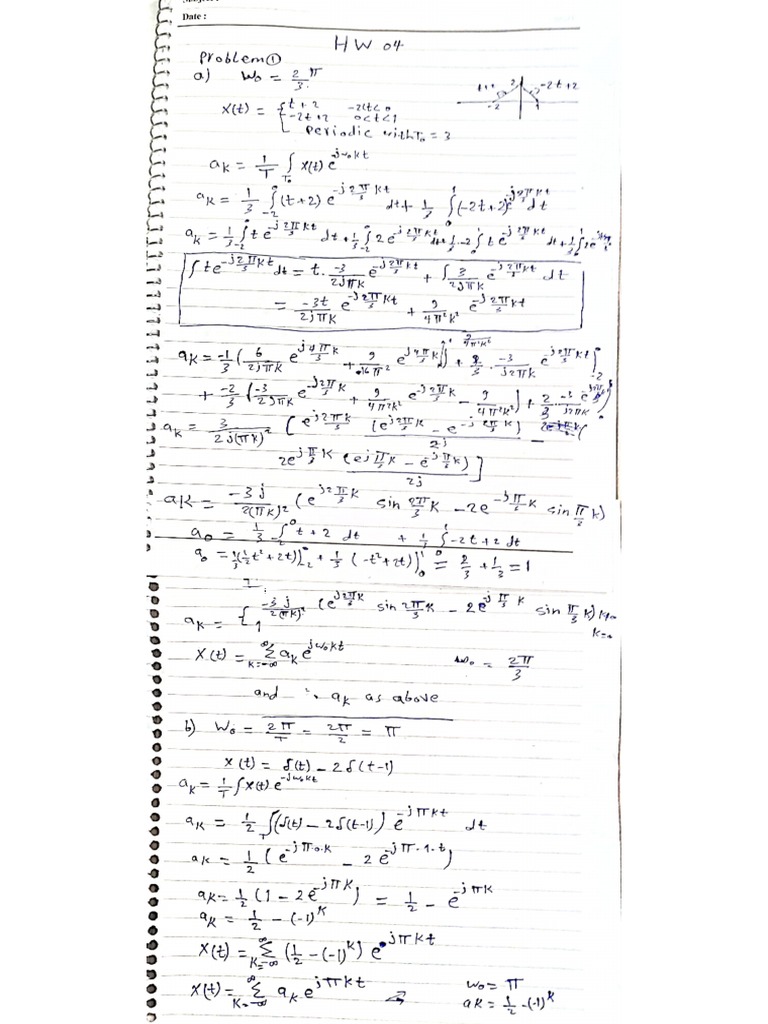 Date :
HW 04
Problem ①
a) W₀ = 2/3 π
-2t+2
X(t) = { t+2 -2<t<0
-2t+2 0<t<1
Periodic with T₀ = 3
aₖ = 1/T ∫_T₀ x(t) e^{-jω₀kt}
aₖ = 1/3 ∫_{-2}^{0} (t+2) e^{-j2π/3 kt} dt + 1/3 ∫_0^1 (-2t+2) e^{-j2π/3 kt} dt
aₖ = 1/3 ∫_{-2}^{0} t e^{-j2π/3 kt} dt + 1/3 ∫_{-2}^{0} 2e^{-j2π/3 kt} dt + 1/3 -2 ∫_0^1 t e^{-j2π/3 kt} dt + 1/3 ∫
∫ t e^{-j2π/3 kt} dt = t · -3/2jπk e^{-j2π/3 kt} + ∫ 3/2jπk e^{-j2π/3 kt} dt
= -3t/2jπk e^{-j2π/3 kt} + 9/4π²k² e^{-j2π/3 kt}
aₖ = -1/3 ( 6/2jπk e^{j4π/3 k} + 9 e^{j4π/3 k} ) + 2/3 · -3/j2πk e^{-j2π/3 kt} ]_{-2}^{0}
+ -2/3 ( -3/2jπk e^{-j2π/3 k} + 9/4π²k² e^{-j2π/3 k} - 9/4π²k² ) + 2/3 -3/j2πk
aₖ = 3/2j(πk)² [ e^{j2π/3 k} (e^{j2π/3 k} - e^{-j2π/3 k})/2j -
2e^{-jπ/3 k} (e^{jπ/3 k} - e^{-jπ/3 k})/2j ]
aₖ = -3j/2(πk)² (e^{j2π/3 k} sin 2π/3 k - 2e^{-jπ/3 k} sin π/3 k)
a₀ = 1/3 ∫_{-2}^{0} t+2 dt + 1/3 ∫_0^1 -2t+2 dt
a₀ = 1/3 (1/2 t² + 2t) |_{-2}^{0} + 1/3 (-t²+2t) |_0^1 = 2/3 + 1/3 = 1
aₖ = { -3j/2(πk)² (e^{j2π/3 k} sin 2π/3 k - 2e^{-jπ/3 k} sin π/3 k) k≠0
1 k=0
X(t) = Σ_{k=-∞}^{∞} aₖ e^{jω₀kt} ω₀ = 2π/3
and aₖ as above
b) W₀ = 2π/T = 2π/2 = π
x(t) = δ(t) - 2δ(t-1)
aₖ = 1/T ∫ x(t) e^{-jω₀kt}
aₖ = 1/2 ∫_T (δ(t) - 2δ(t-1)) e^{-jπkt} dt
aₖ = 1/2 (e^{-jπ·0·k} - 2e^{-jπ·1·t})
aₖ = 1/2 (1 - 2e^{-jπk}) = 1/2 - e^{-jπk}
aₖ = 1/2 - (-1)^k
X(t) = Σ_{k=-∞}^{∞} (1/2 - (-1)^k) e^{jπkt}
X(t) = Σ_{k=-∞}^{∞} aₖ e^{jπkt} ω₀ = π
aₖ = 1/2 - (-1)^k